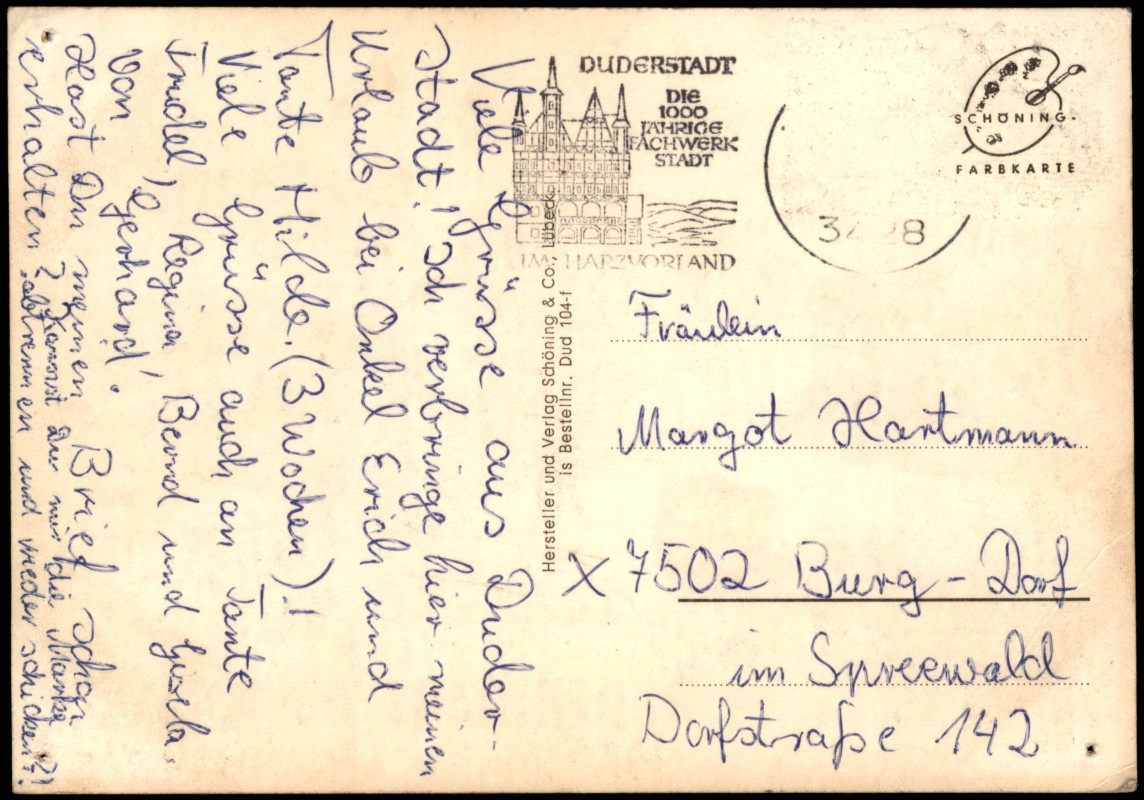 Viele Grüsse aus Duder-
stadt! Ich verbringe hier meinen
Urlaub bei Onkel Erich und
Tante Hilde. (3 Wochen).!
Viele Grüsse auch an Tante
Trudel, Regina, Bernd und Gisela.
Von Gerhard.
Hast Du meinen Brief schon
erhalten? Kannst Du mir die Marke
abtrennen und wieder schicken?!
DUDERSTADT
DIE
1000
JÄHRIGE
FACHWERK
STADT
IM HARZVORLAND
SCHÖNING
FARBKARTE
Hersteller und Verlag Schöning & Co., Lübeck
is Bestellnr. Dud 104-f
Fräulein
Margot Hartmann
X 7502 Burg - Dorf
im Spreewald
Dorfstraße 142